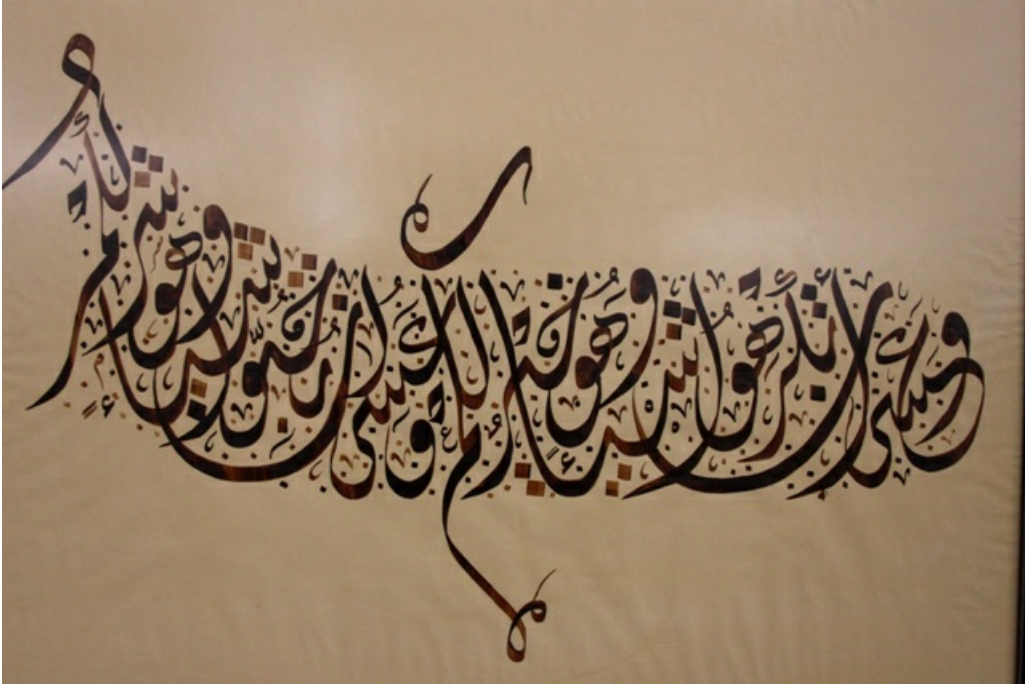 وَعَسَىٰ أَن تَكْرَهُوا شَيْئًا وَهُوَ خَيْرٌ لَّكُمْ وَعَسَىٰ أَن تُحِبُّوا شَيْئًا وَهُوَ شَرٌّ لَّكُمْ